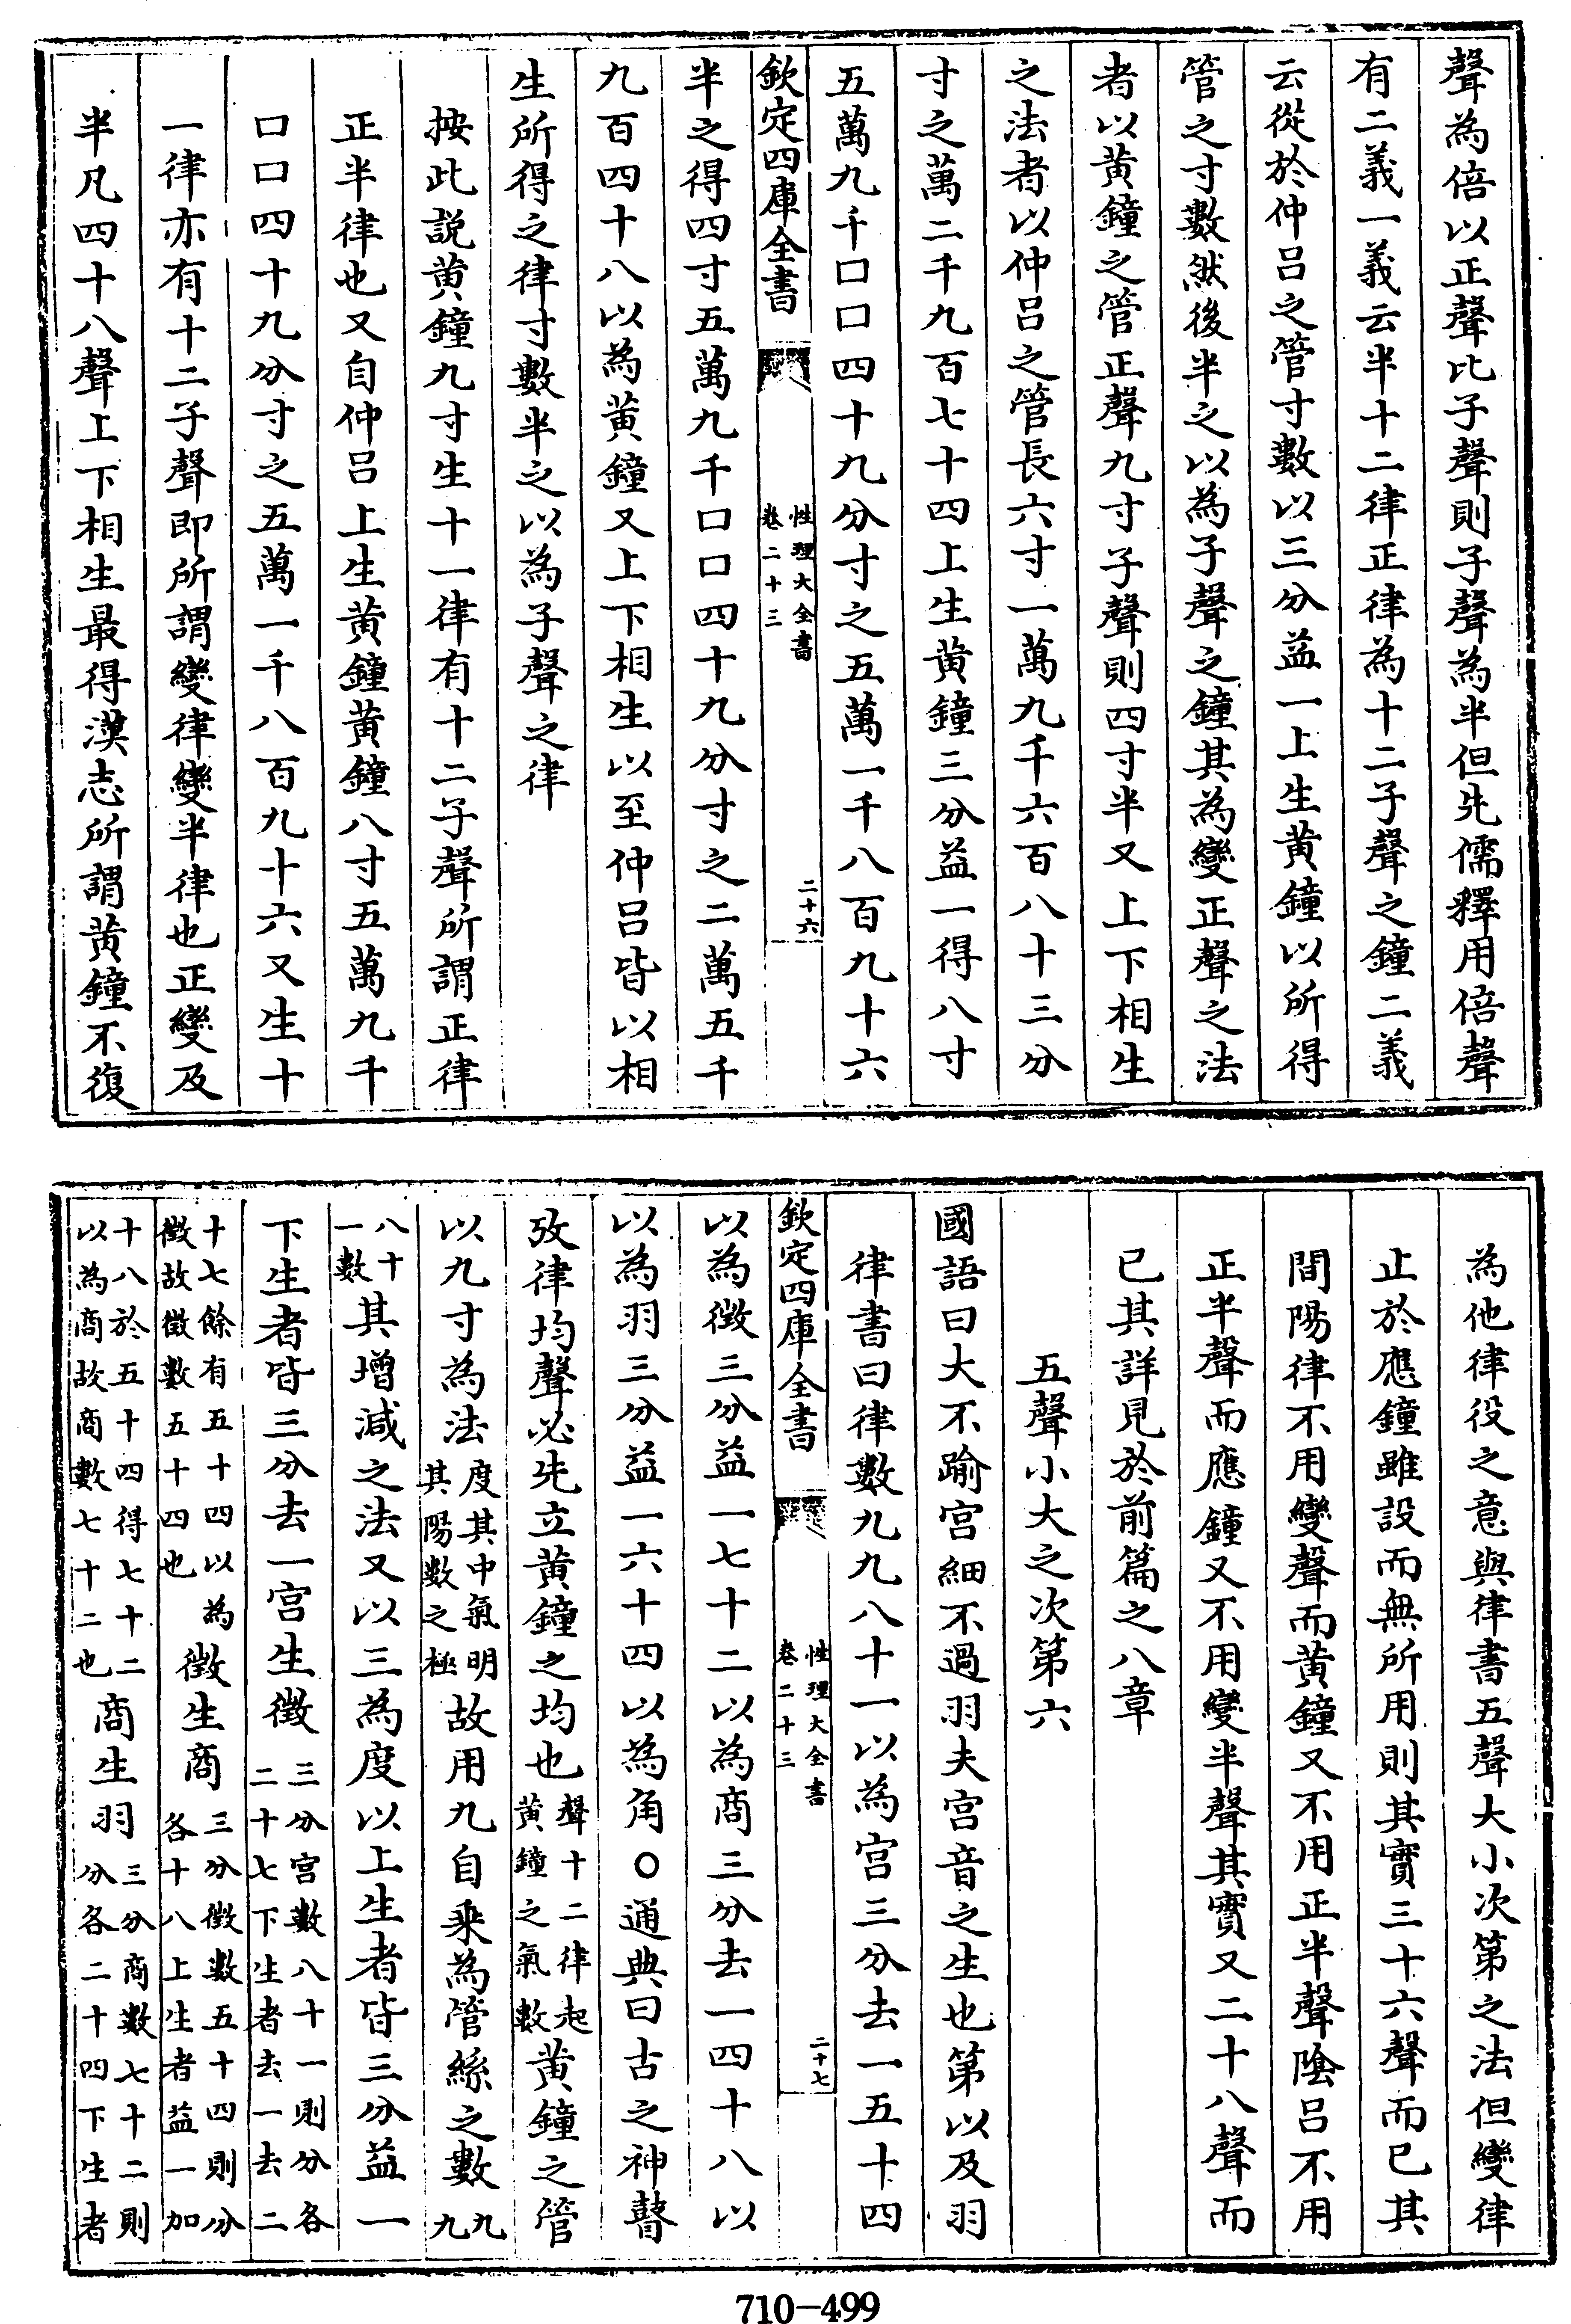 聲為倍以正聲比子聲則子聲為半但先儒釋用倍聲
有二義一義云半十二律正律為十二子聲之鐘二義
云從於仲呂之管寸數以三分益一上生黃鐘以所得
管之寸數然後半之以為子聲之鐘其為變正聲之法
者以黃鐘之管正聲九寸子聲則四寸半又上下相生
之法者以仲呂之管長六寸一萬九千六百八十三分
寸之萬二千九百七十四上生黃鐘三分益一得八寸
五萬九千口口四十九分寸之五萬一千八百九十六
欽定四庫全書
性理大全書
卷二十三
二十六
半之得四寸五萬九千口口四十九分寸之二萬五千
九百四十八以為黃鐘又上下相生以至仲呂皆以相
生所得之律寸數半之以為子聲之律
按此說黃鐘九寸生十一律有十二子聲所謂正律
正半律也又自仲呂上生黃鐘黃鐘八寸五萬九千
口口四十九分寸之五萬一千八百九十六又生十
一律亦有十二子聲即所謂變律變半律也正變及
半凡四十八聲上下相生最得漢志所謂黃鐘不復
為他律役之意與律書五聲大小次第之法但變律
止於應鐘雖設而無所用則其實三十六聲而已其
間陽律不用變聲而黃鐘又不用正半聲陰呂不用
正半聲而應鐘又不用變半聲其實又二十八聲而
已其詳見於前篇之八章
五聲小大之次第六
國語曰大不踰宮細不過羽夫宮音之生也第以及羽
律書曰律數九九八十一以為宮三分去一五十四
欽定四庫全書
性理大全書
卷二十三
二十七
以為徵三分益一七十二以為商三分去一四十八以
以為羽三分益一六十四以為角○通典曰古之神瞽
攷律均聲必先立黃鐘之均也聲十二律起黃鐘之氣數黃鐘之管
以九寸為法度其中氣明其陽數之極故用九自乘為管絲之數九九
八十一數其增減之法又以三為度以上生者皆三分益一
下生者皆三分去一宮生徵三分宮數八十一則分各二十七下生者去一去二
十七餘有五十四以為徵故徵數五十四也徵生商三分徵數五十四則分各十八上生者益一加
十八於五十四得七十二以為商故商數七十二也商生羽三分商數七十二則分各二十四下生者
710-499